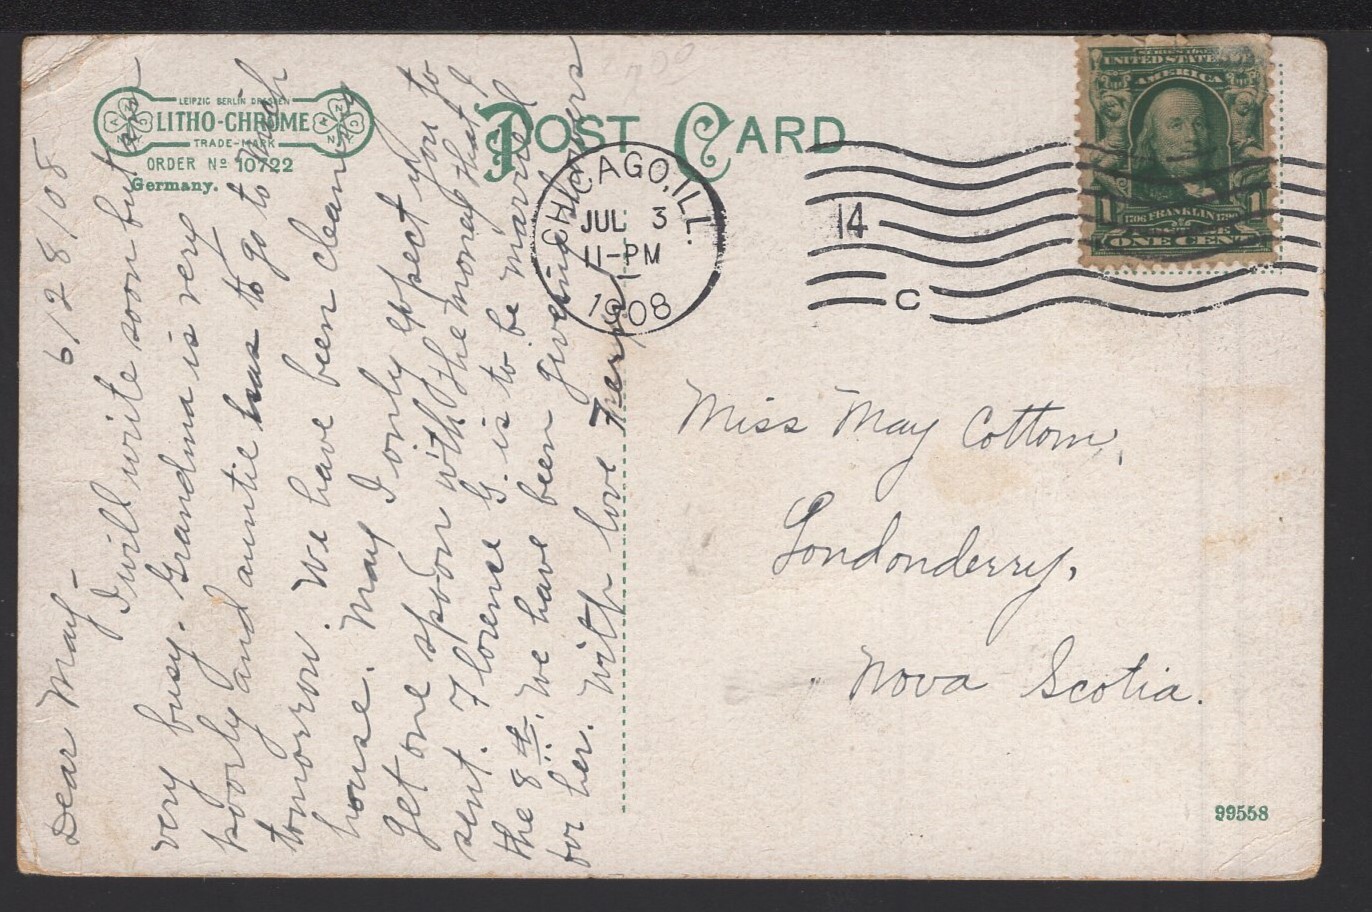 LEIPZIG BERLIN DRESDEN
LITHO-CHROME
TRADE-MARK
ORDER No 10722
Germany.
POST CARD
CHICAGO, ILL.
JUL 3
11-PM
1908
14
C
SERIES 1902
UNITED STATES
AMERICA
1 1
1706 FRANKLIN 1790
ONE CENT
6/28/08
Dear May-
I will write soon but am
very busy. Grandma is very
poorly and auntie has to go to
tomorrow. We have been cleaning
house. May I only expect you to
get one spoon with the money that I
sent. Florence G. is to be married
the 8th. We have been giving showers
for her. With love
Miss May Cottom,
Londonderry,
Nova Scotia.
99558